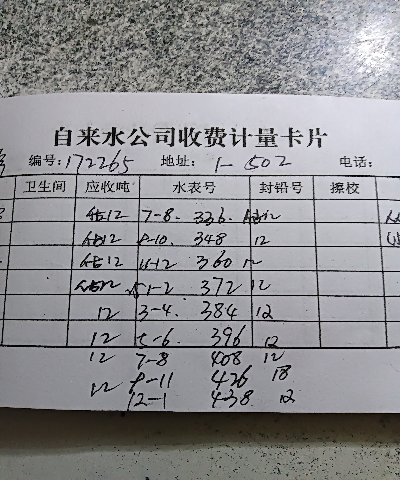 自来水公司收费计量卡片
编号: 172265 地址: 1-502 电话:
卫生间 应收吨 水表号 封铅号 擦校
12 7-8. 336. 12
12 9-10. 348 12
12 11-12 360 12
12 1-2 372 12
12 3-4. 384 12
12 5-6. 396 12
12 7-8 408 12
12 9-11 426 18
12-1 438 12